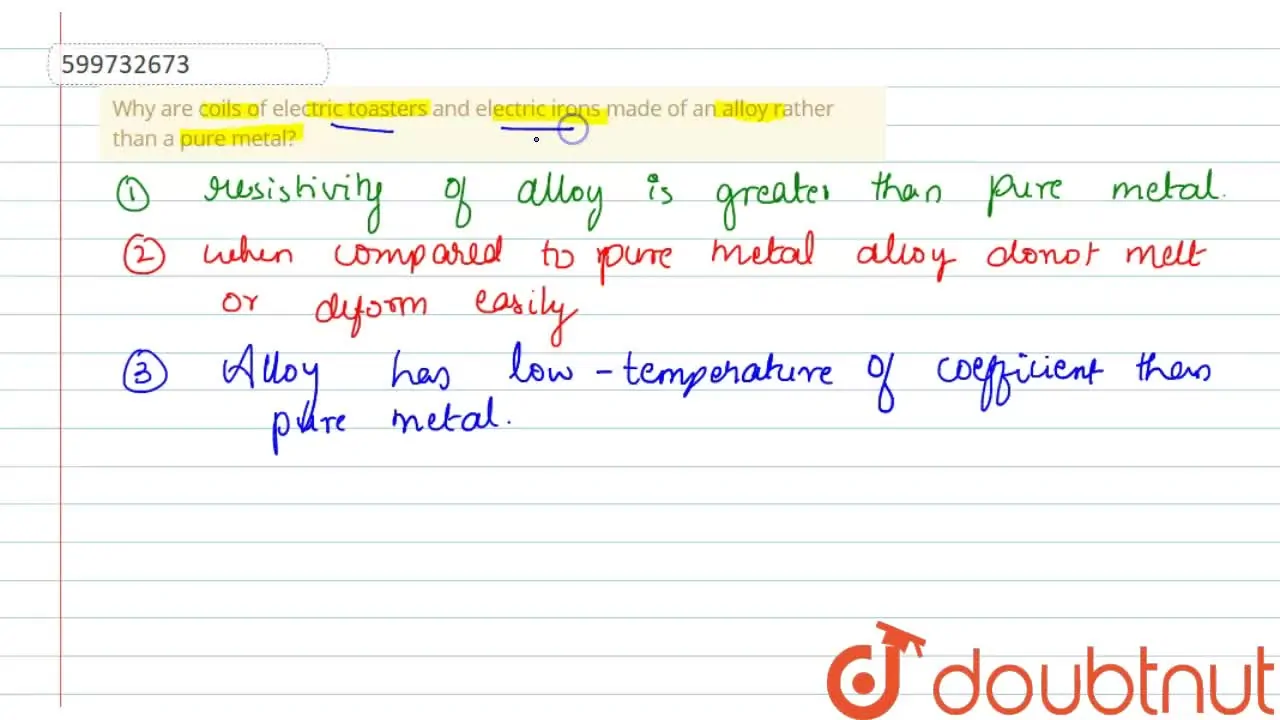 599732673
Why are coils of electric toasters and electric irons made of an alloy rather
than a pure metal?
① resistivity of alloy is greater than pure metal.
② when compared to pure metal alloy donot melt
or deform easily
③ Alloy has low-temperature of coefficient than
pure metal.
doubtnut